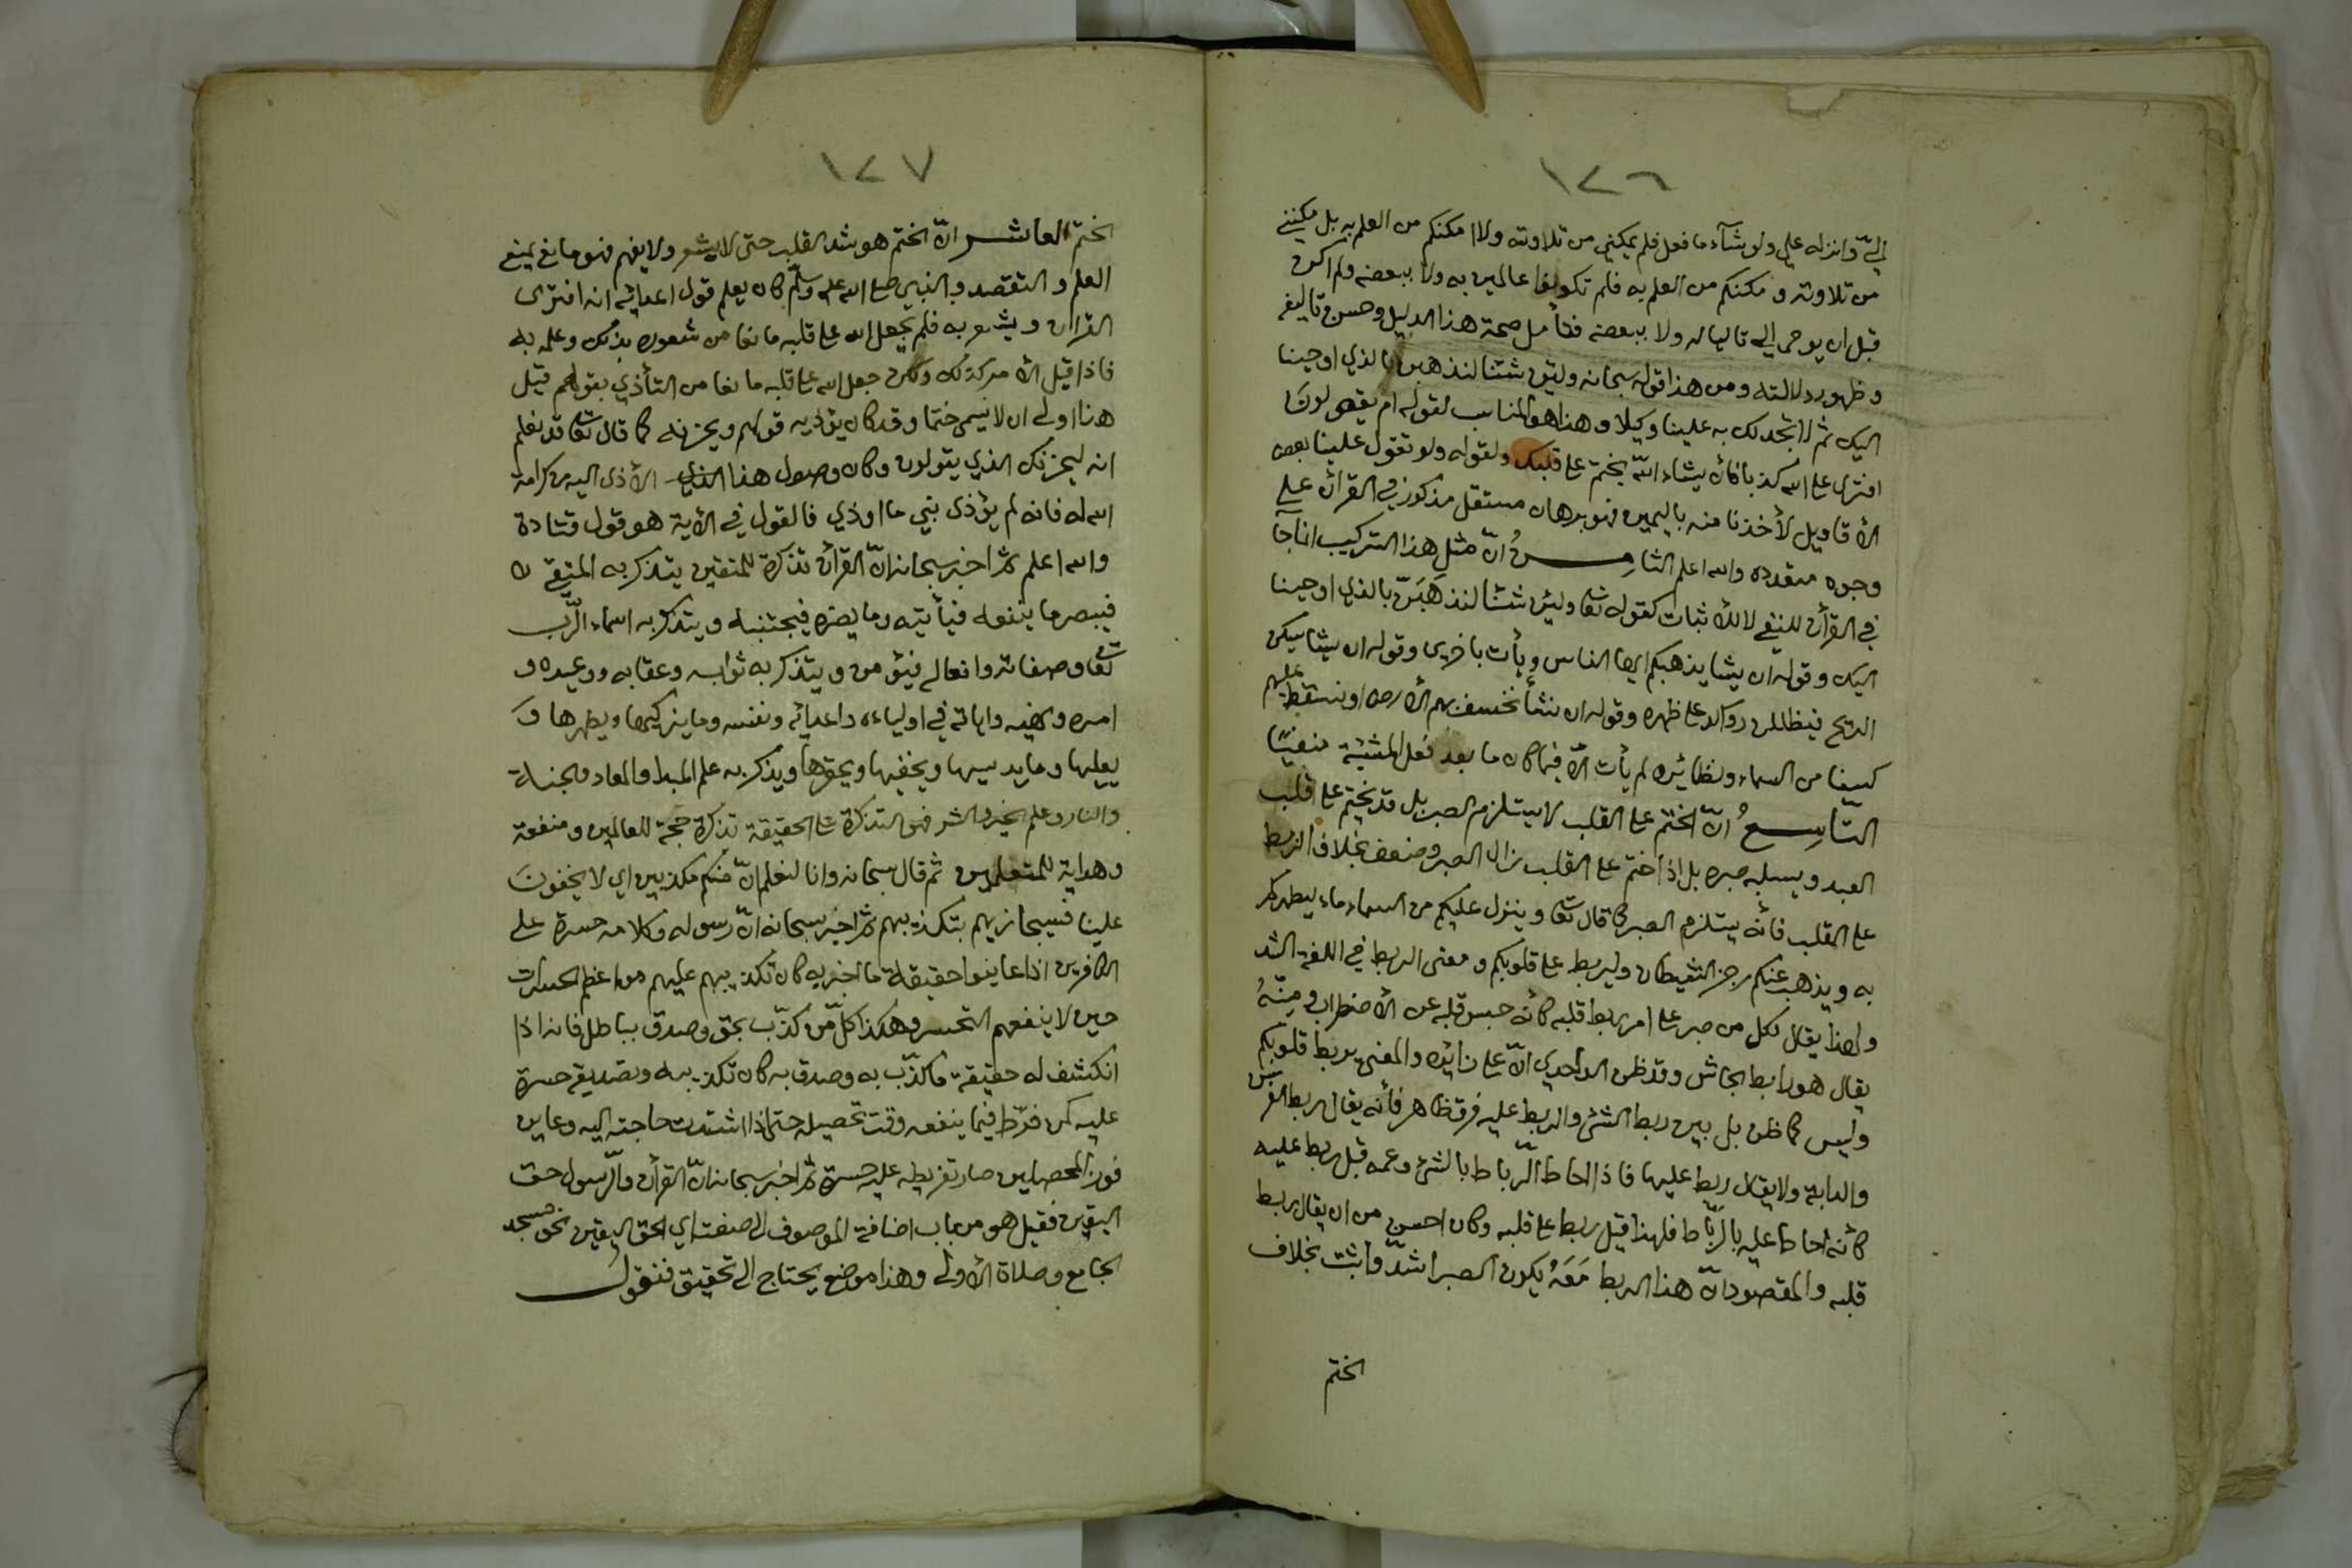 ١٢٦
إليّ وانزله علي ولو شآء ما فعل فلم يمكني من تلاوته ولا امكنكم من العلم به بل مكنني
من تلاوته و مكنكم من العلم به فلم تكونوا عالمين به ولا ببعضه ولم اكن
قبل ان يوحى إلي تاليا له ولا ببعضه فتأمل صحة هذا الدليل وحسن تاليفه
و ظهور دلالته ومن هذا قوله سبحانه ولئن شئنا لنذهبن بالذي اوحينا
اليك ثم لا تجد لك به علينا وكيلا و هذا هو المناسب لقوله ام يقولون
افترى على الله كذبا فان يشاء اللّه يختم على قلبك ولقوله ولو تقول علينا بعض
الأقاويل لأخذنا منه باليمين فهو برهان مستقل مذكور في القرآن على
وجوه متعدده والله اعلم الثامن انّ مثل هذا التركيب انما جآ
في القرآن للنفي لا للأثبات كقوله تعا ولئن شئنا لنذهَبَنّ بالذي اوحينا
اليك وقوله ان يشا يذهبكم ايها الناس ويأت باخرين وقوله ان يشا يسكن
الريح فيظللن رواكد على ظهره وقوله ان نشأ نخسف بهم الأرض او نسقط عليهم
كسفا من السماء ونظائره لم يأت الّا فيما كان ما بعد فعل المشيئة منفيًا
التّاسِعُ انّ الختم على القلب لا يستلزم الصبر بل قد يختم على قلب
العبد ويسلبه صبره بل اذا ختم على القلب زال الصبر وضعف بخلاف الربط
على القلب فأنه يستلزم الصبر كما قال تعا وينزل عليكم من السماء ماء ليطهركم
به ويذهب عنكم رجز الشيطان وليربط على قلوبكم و معنى الربط في اللغة الشد
ولهذا يقال لكل من صبر على امر ربط قلبه كأنه حبس قلبه عن الأضطراب ومنهُ
يقال هو رابط الجاش وقد ظن الواحدي انّ على زائده والمعنى يربط قلوبكم
وليس كما ظن بل بين ربط الشئ والربط عليه فرق ظاهر فأنه يقال ربط الفرس
والدابة ولا يقال ربط عليها فاذا احاط الرّباط بالشئ وعمه قيل ربط عليه
كأنه احاط عليه بالرّباط فلهذا قيل ربط على قلبه وكان احسن من ان يقال ربط
قلبه والمقصود انّ هذا الربط مَعَهُ يكون الصبر اشدّ واثبت بخلاف
الختم
١٢٧
الختم العاشر انّ الختم هو شد القلب حتى لا يشعر ولا يفهم فهو مانع يمنع
العلم والتقصد والنبي صلى الله عليه وسلّم كان يعلم قول اعدائه انه افترى
القرآن ويشعر به فلم يجعل الله على قلبه مانعا من شعوره بذلك وعلمه به
فاذا قيل الأمر كذلك ولكن جعل الله على قلبه مانعا من التأذي بقولهم قيل
هذا اولى ان لا يسمى ختما وقد كان يؤذيه قولهم ويحزنه كما قال تعا قد نعلم
انه ليحزنك الذي يقولون وكان وصول هذا الأذى اليه من كرامة
الله له فانه لم يؤذى نبي ما اوذي فالقول في الأية هو قول قتادة
والله اعلم ثم اخبر سبحانه انّ القرآن تذكرة للمتقين يتذكر به المتقي
فيبصر ما ينفعه فيأتيه وما يضره فيجتنبه ويتذكر به اسماء الرّب
تعا وصفاته وافعاله فيؤمن ويتذكر به ثوابه وعقابه ووعيده و
امره ونهيه واياته في اولياءه واعدائه ونفسه وما يزكيها ويطهرها و
يعليها وما يدسيها ويخفيها ويحقرها ويذكر به علم المبدا والمعاد والجنة
والنار وعلم الخير والشر فهو التذكرة على الحقيقة تذكرة حجة للعالمين ومنفعة
وهداية للمتعلمين ثم قال سبحانه وانا لنعلم انّ منكم مكذبين اي لا يخفون
علينا فسيجازيهم بتكذيبهم ثم اخبر سبحانه انّ رسوله وكلامه حسرة على
الكافرين اذا عاينوا حقيقة ما اخبر به كان تكذيبهم عليهم من اعظم الحسرات
حين لا ينفعهم التحسر وهكذا كلّ من كذّب بحق وصدق بباطل فانه اذا
انكشف له حقيقة ما كذّب به وصدق به كان تكذيبه وتصديقه حسرة
عليه كمن فرّط فيما ينفعه وقت تحصيله حتى اذا اشتدت حاجته اليه وعاين
فوز المحصلين صار تفريطه عليه حسرة ثم اخبر سبحانه انّ القرآن والرّسول حق
اليقين فقيل هو من باب اضافة الموصوف الى صفته اي الحق اليقين نحو مسجد
الجامع وصلاة الأولى وهذا موضع يحتاج الى تحقيق فنقول